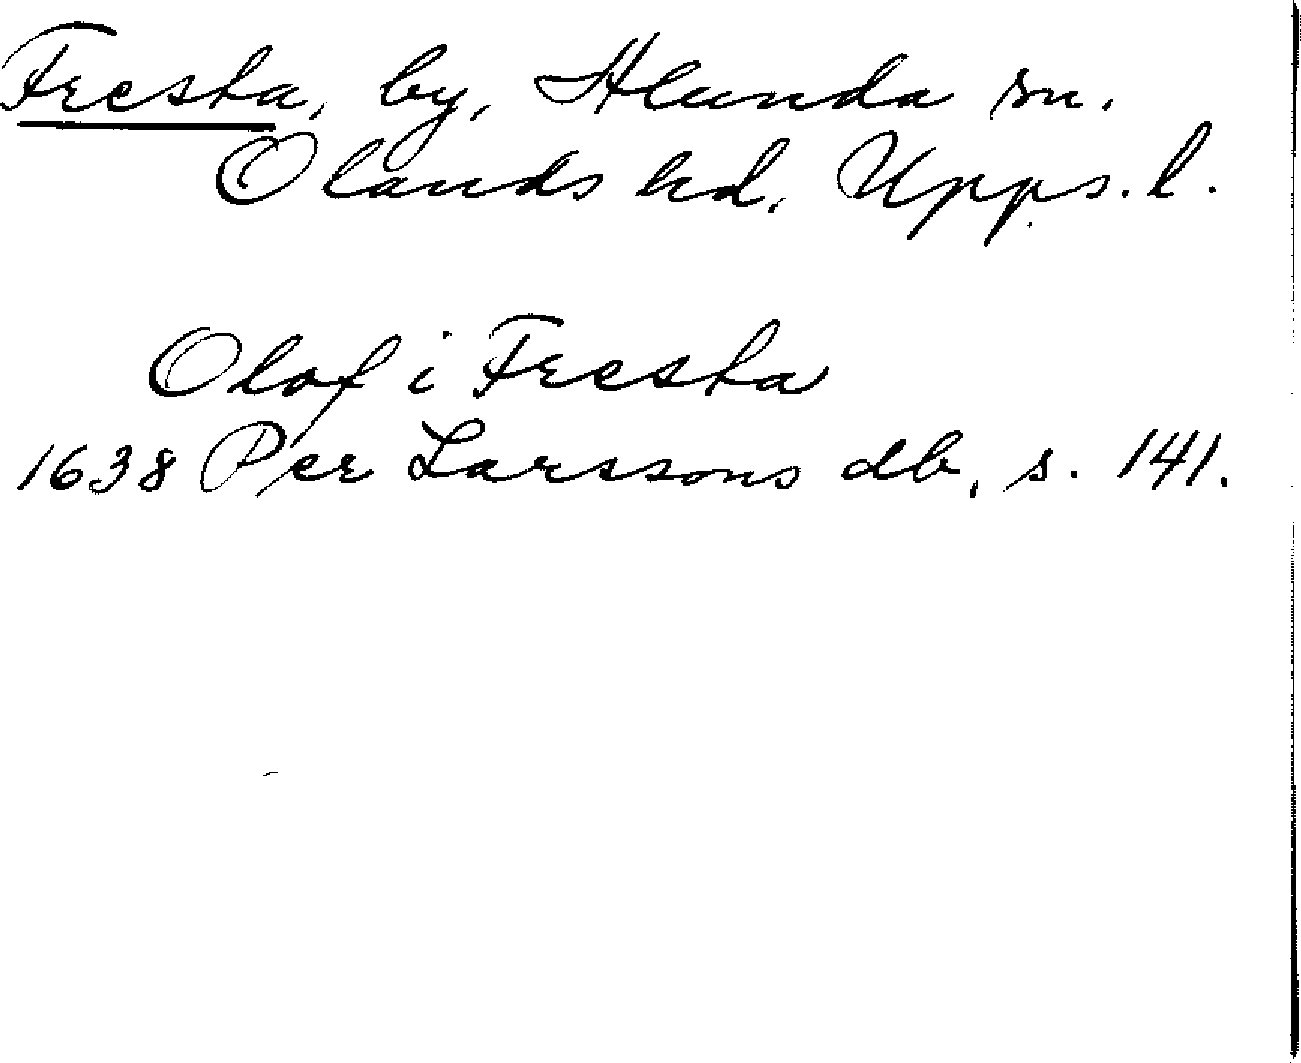 Fresta, by, Alunda sn.
Olands hd, Upps. l.
Olof i Fresta
1638 Per Larssons db, s. 141.